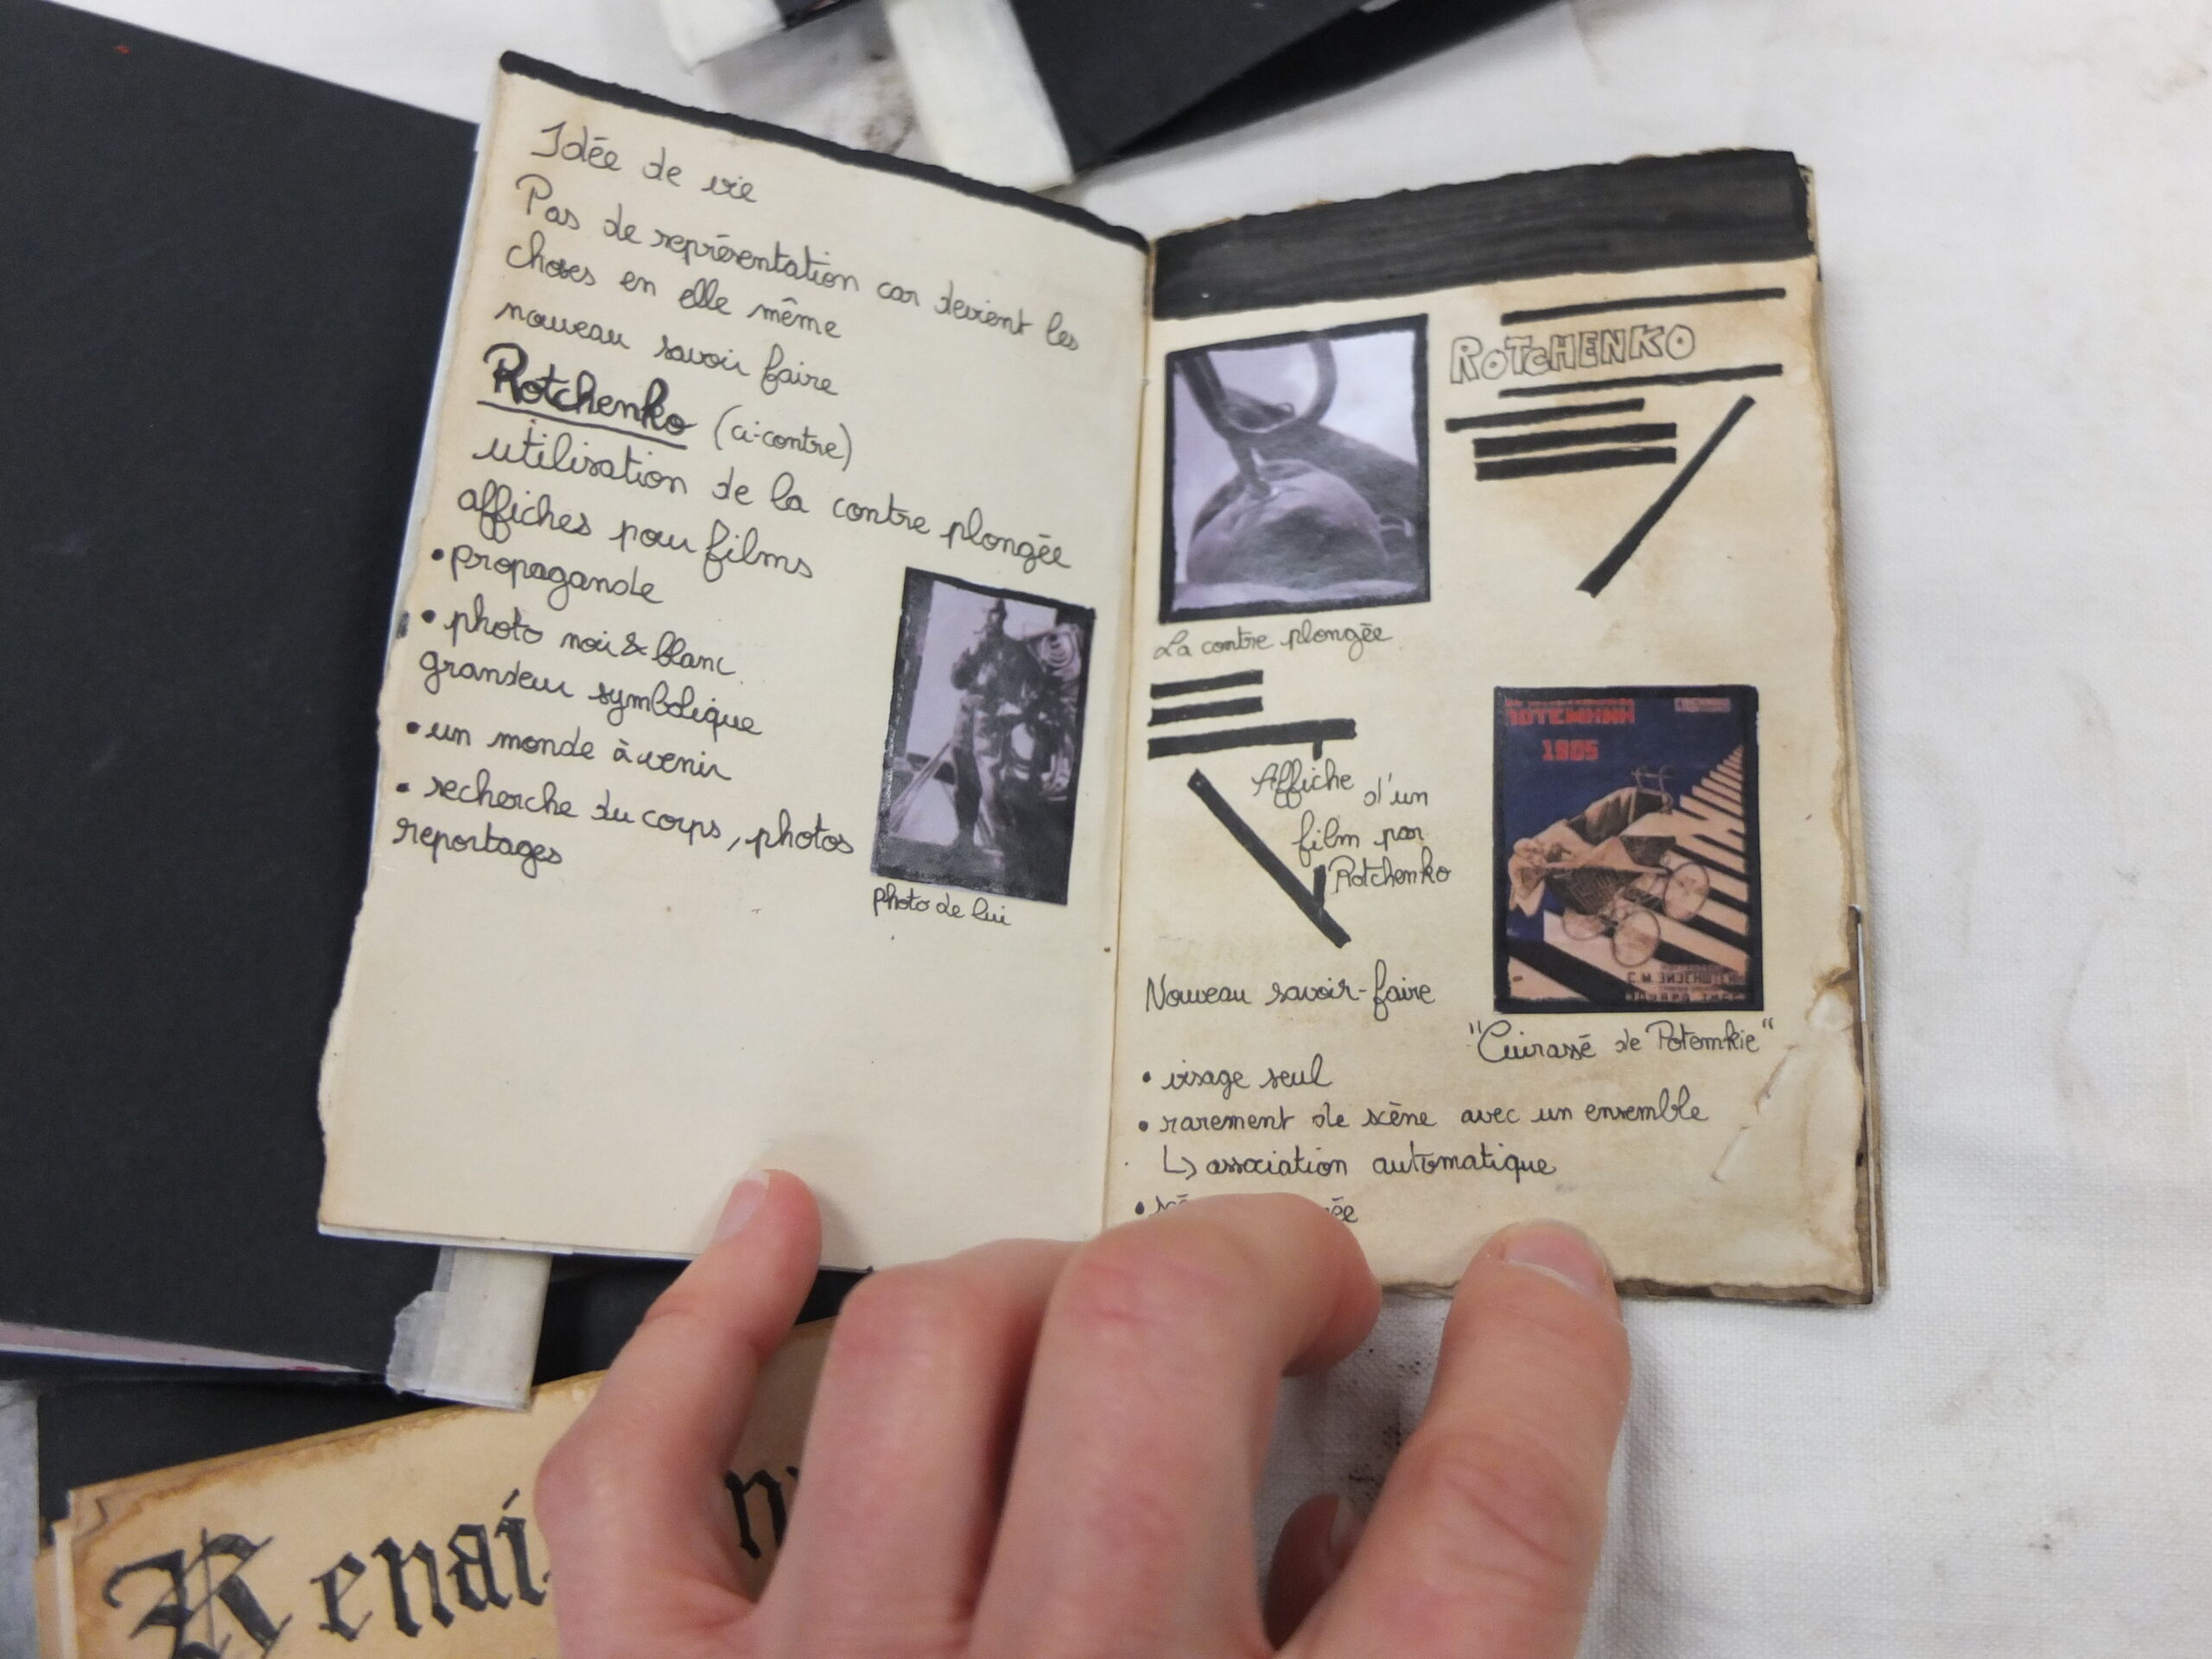 Idée de vie
Pas de représentation car devient les
choses en elle même
nouveau savoir faire
Rotchenko (ci-contre)
utilisation de la contre plongée
affiches pour films
• propagande
• photo noir & blanc
grandeur symbolique
• un monde à venir
• recherche du corps, photos
reportages
photo de lui
ROTCHENKO
La contre plongée
1905
Affiche d'un
film par
Rotchenko
"Cuirassé de Potemkie"
Nouveau savoir-faire
• visage seul
• rarement de scène avec un ensemble
↳ association automatique